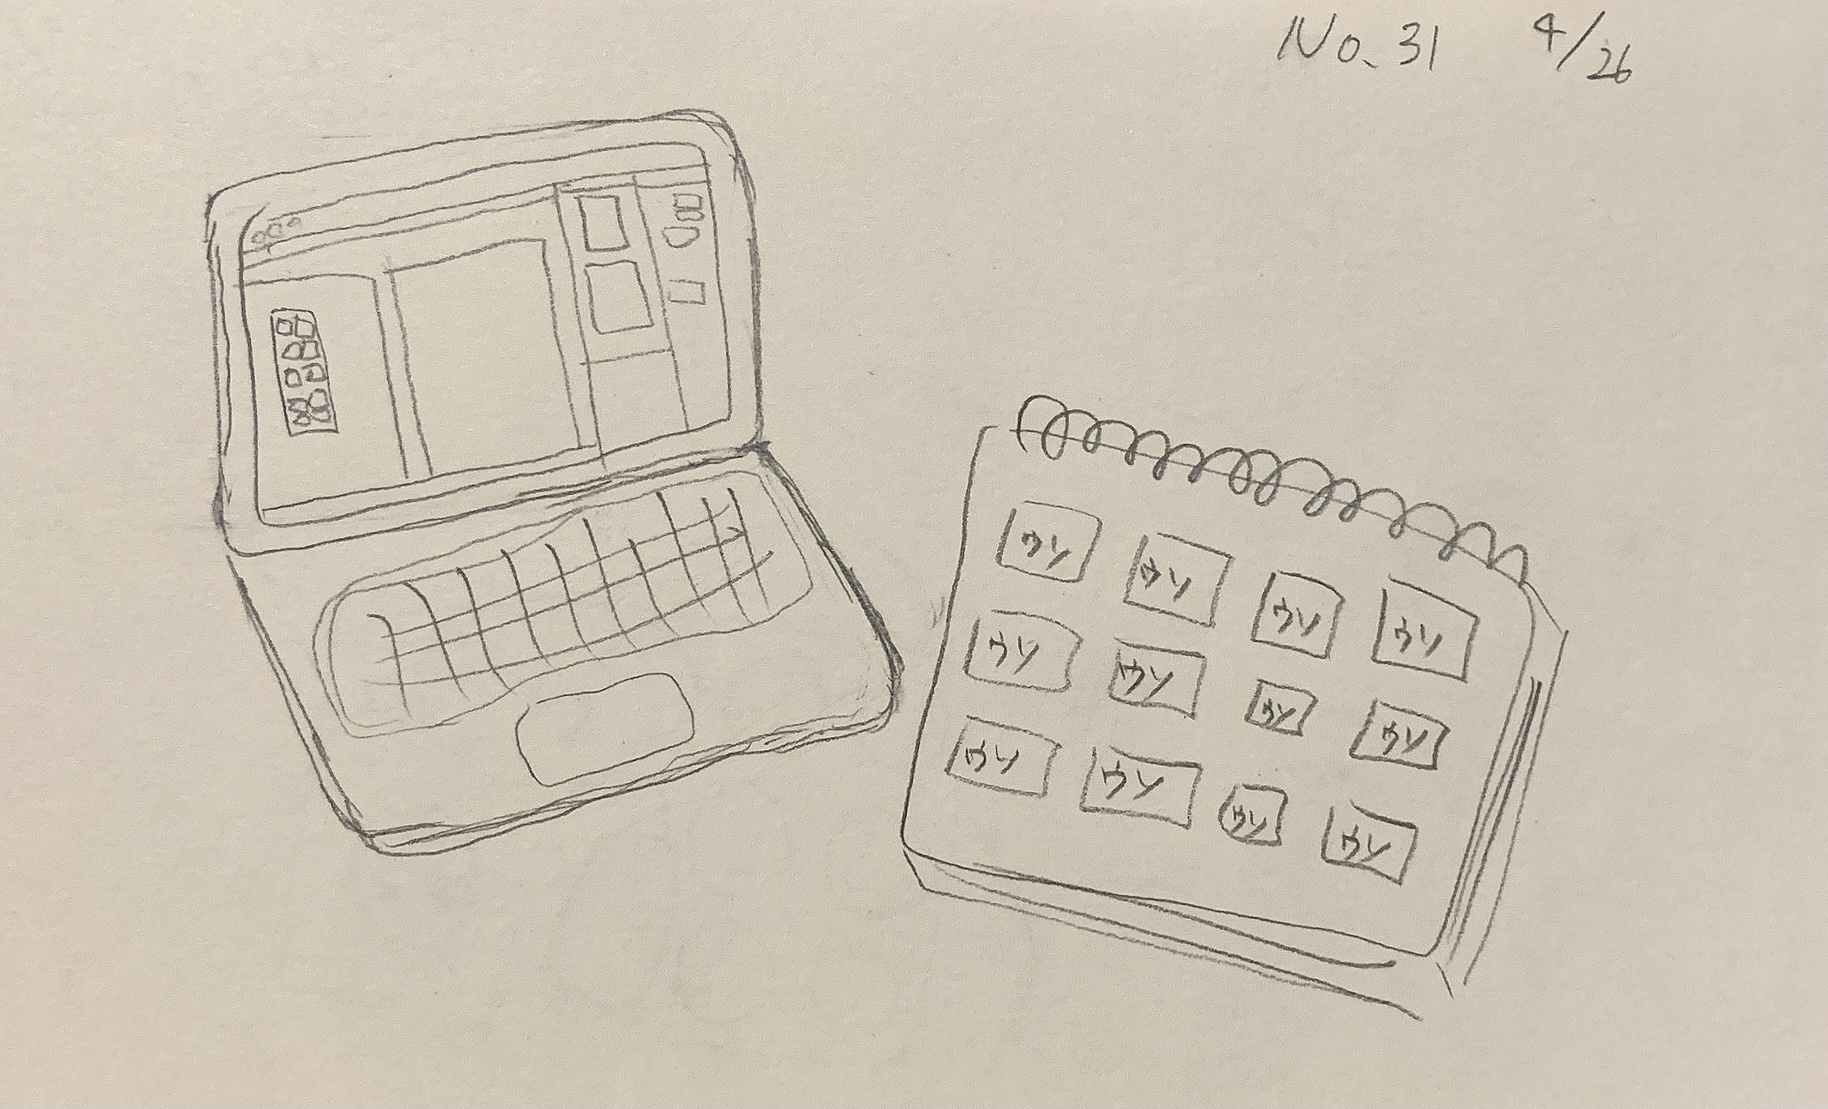 No. 31 4/26
ウソ ウソ ウソ ウソ
ウソ ウソ ウソ ウソ
ウソ ウソ ウソ ウソ